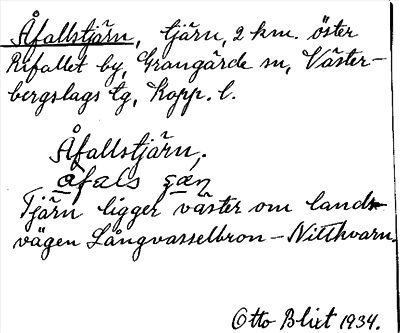 Åfallstjärn, tjärn, 2 km. öster
Rifallet by, Grangärde sn, Väster-
bergslags tg, Kopp. l.
Åfallstjärn,.
åfals
Tjärn ligger väster om lands-
vägen Långvasselbron - Nitthvarn.
Otto Blixt 1934.